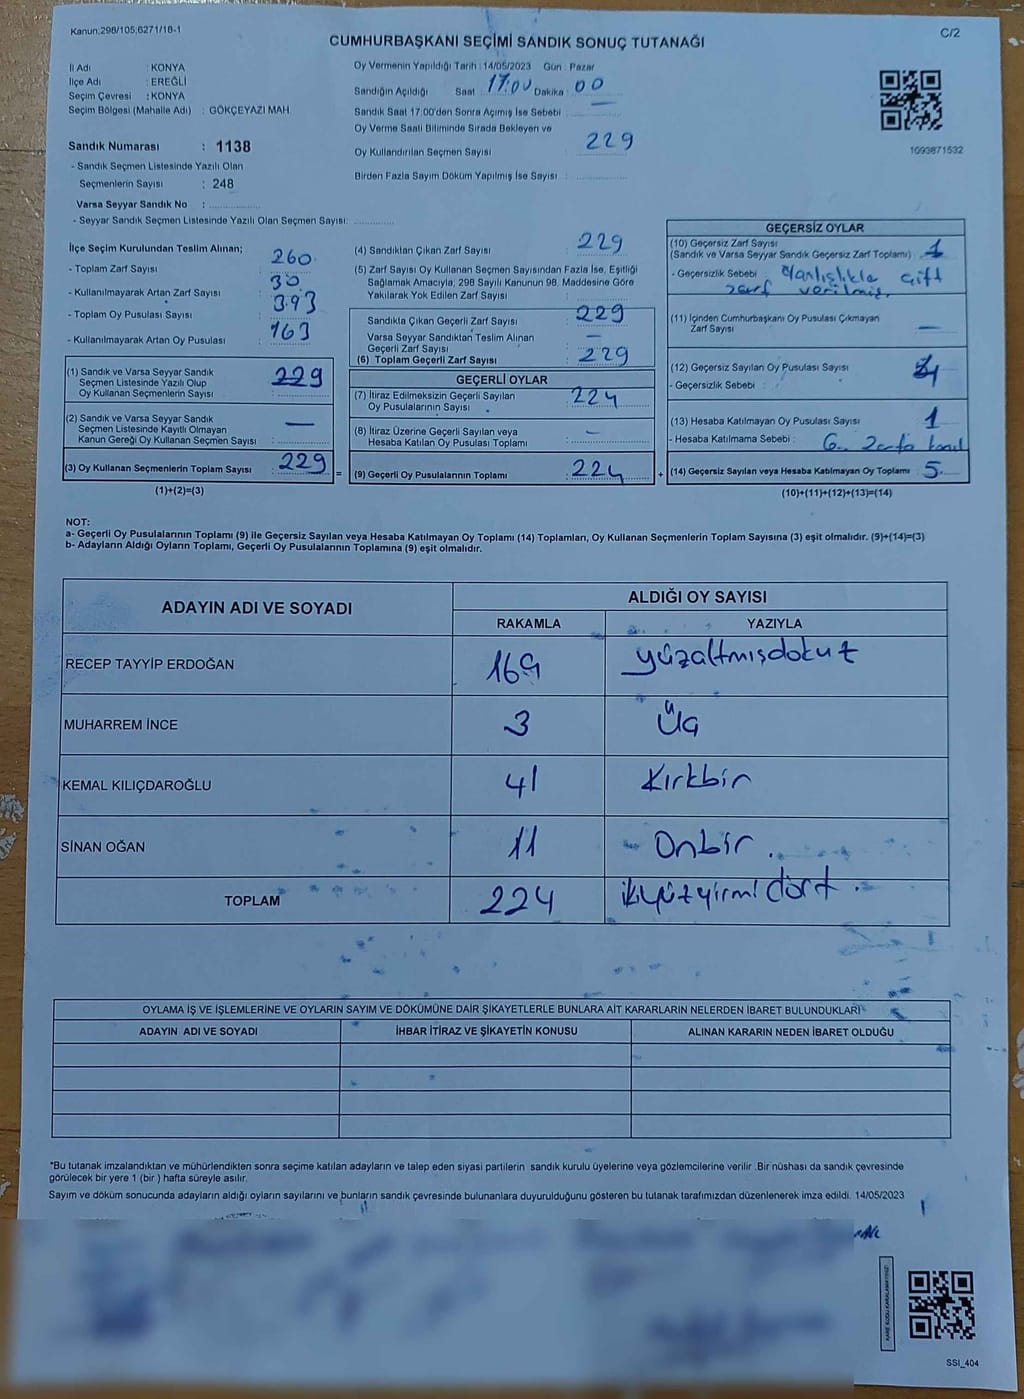 Kanun:298/105;6271/18-1
C/2
CUMHURBAŞKANI SEÇİMİ SANDIK SONUÇ TUTANAĞI
İl Adı : KONYA
İlçe Adı : EREĞLİ
Seçim Çevresi : KONYA
Seçim Bölgesi (Mahalle Adı) : GÖKÇEYAZI MAH.
Sandık Numarası : 1138
- Sandık Seçmen Listesinde Yazılı Olan
Seçmenlerin Sayısı : 248
Varsa Seyyar Sandık No :
- Seyyar Sandık Seçmen Listesinde Yazılı Olan Seçmen Sayısı:
Oy Vermenin Yapıldığı Tarih : 14/05/2023 Gün : Pazar
Sandığın Açıldığı Saat : 17:00 Dakika : 00
Sandık Saat 17.00'den Sonra Açımış İse Sebebi : —
Oy Verme Saati Bitiminde Sırada Bekleyen ve
Oy Kullandırılan Seçmen Sayısı : 229
Birden Fazla Sayım Döküm Yapılmış İse Sayısı :
1093871532
İlçe Seçim Kurulundan Teslim Alınan;
- Toplam Zarf Sayısı : 260
- Kullanılmayarak Artan Zarf Sayısı : 30
- Toplam Oy Pusulası Sayısı : 393
- Kullanılmayarak Artan Oy Pusulası : 163
(1) Sandık ve Varsa Seyyar Sandık
Seçmen Listesinde Yazılı Olup
Oy Kullanan Seçmenlerin Sayısı : 229
(2) Sandık ve Varsa Seyyar Sandık
Seçmen Listesinde Kayıtlı Olmayan
Kanun Gereği Oy Kullanan Seçmen Sayısı : —
(3) Oy Kullanan Seçmenlerin Toplam Sayısı : 229
(1)+(2)=(3)
=
(4) Sandıktan Çıkan Zarf Sayısı : 229
(5) Zarf Sayısı Oy Kullanan Seçmen Sayısından Fazla İse, Eşitliği
Sağlamak Amacıyla, 298 Sayılı Kanunun 98. Maddesine Göre
Yakılarak Yok Edilen Zarf Sayısı :
Sandıkta Çıkan Geçerli Zarf Sayısı : 229
Varsa Seyyar Sandıktan Teslim Alınan
Geçerli Zarf Sayısı : —
(6) Toplam Geçerli Zarf Sayısı : 229
GEÇERLİ OYLAR
(7) İtiraz Edilmeksizin Geçerli Sayılan
Oy Pusulalarının Sayısı : 224
(8) İtiraz Üzerine Geçerli Sayılan veya
Hesaba Katılan Oy Pusulası Toplamı : —
(9) Geçerli Oy Pusulalarının Toplamı : 224
+
GEÇERSİZ OYLAR
(10) Geçersiz Zarf Sayısı
(Sandık ve Varsa Seyyar Sandık Geçersiz Zarf Toplamı) : 1
- Geçersizlik Sebebi : Yanlışlıkla çift
zarf verilmiş.
(11) İçinden Cumhurbaşkanı Oy Pusulası Çıkmayan
Zarf Sayısı : —
(12) Geçersiz Sayılan Oy Pusulası Sayısı :
- Geçersizlik Sebebi :
(13) Hesaba Katılmayan Oy Pusulası Sayısı : 1
- Hesaba Katılmama Sebebi :
(14) Geçersiz Sayılan veya Hesaba Katılmayan Oy Toplamı : 5
(10)+(11)+(12)+(13)=(14)
NOT:
a- Geçerli Oy Pusulalarının Toplamı (9) ile Geçersiz Sayılan veya Hesaba Katılmayan Oy Toplamı (14) Toplamları, Oy Kullanan Seçmenlerin Toplam Sayısına (3) eşit olmalıdır. (9)+(14)=(3)
b- Adayların Aldığı Oyların Toplamı, Geçerli Oy Pusulalarının Toplamına (9) eşit olmalıdır.
ADAYIN ADI VE SOYADI
ALDIĞI OY SAYISI
RAKAMLA YAZIYLA
RECEP TAYYİP ERDOĞAN 169 yüzaltmışdokuz
MUHARREM İNCE 3 Üç
KEMAL KILIÇDAROĞLU 41 Kırkbir
SİNAN OĞAN 11 Onbir.
TOPLAM 224 ikiyüzyirmidört.
OYLAMA İŞ VE İŞLEMLERİNE VE OYLARIN SAYIM VE DÖKÜMÜNE DAİR ŞİKAYETLERLE BUNLARA AİT KARARLARIN NELERDEN İBARET BULUNDUKLARI
ADAYIN ADI VE SOYADI İHBAR İTİRAZ VE ŞİKAYETİN KONUSU ALINAN KARARIN NEDEN İBARET OLDUĞU
*Bu tutanak imzalandıktan ve mühürlendikten sonra seçime katılan adayların ve talep eden siyasi partilerin sandık kurulu üyelerine veya gözlemcilerine verilir .Bir nüshası da sandık çevresinde
görülecek bir yere 1 (bir ) hafta süreyle asılır.
Sayım ve döküm sonucunda adayların aldığı oyların sayılarını ve bunların sandık çevresinde bulunanlara duyurulduğunu gösteren bu tutanak tarafımızdan düzenlenerek imza edildi. 14/05/2023
KARE KODU KARALAMAYINIZ!
SSI_404